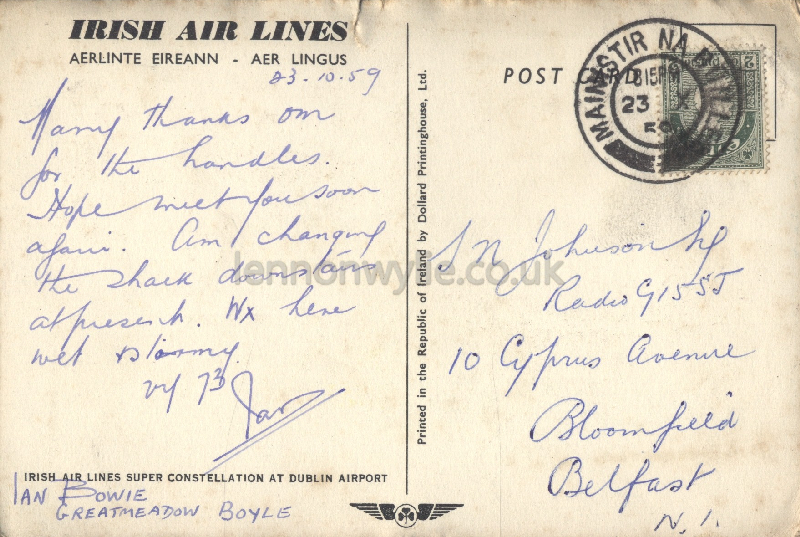 IRISH AIR LINES
AERLINTE EIREANN - AER LINGUS
23.10.59
Many thanks om
for the handles.
Hope meet you soon
again. Am changing
the shack downstairs
at present. Wx here
wet & stormy
vy 73
Ian
IRISH AIR LINES SUPER CONSTELLATION AT DUBLIN AIRPORT
IAN BOWIE
GREATMEADOW BOYLE
Printed in the Republic of Ireland by Dollard Printinghouse, Ltd.
POST CARD
MAINISTIR NA BÚILLE
815PM
23 X
59
S N Johnson Esq
Radio GI5SJ
10 Cyprus Avenue
Bloomfield
Belfast
N.I.
lennonwylie.co.uk